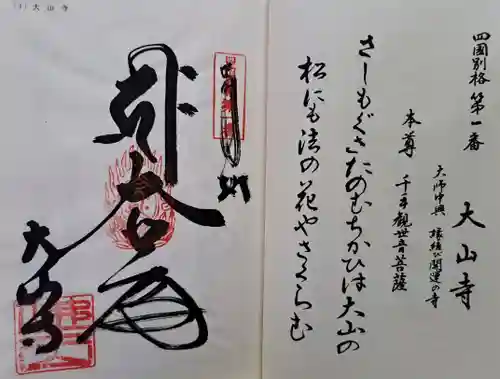 四國別格第一番
大山寺
大師中興 縁結び開運の寺
本尊 千手觀世音菩薩
さしもぐさたのむちかひは大山の
松にも法の花やさくらむ
(1) 大山寺
奉納
大山寺